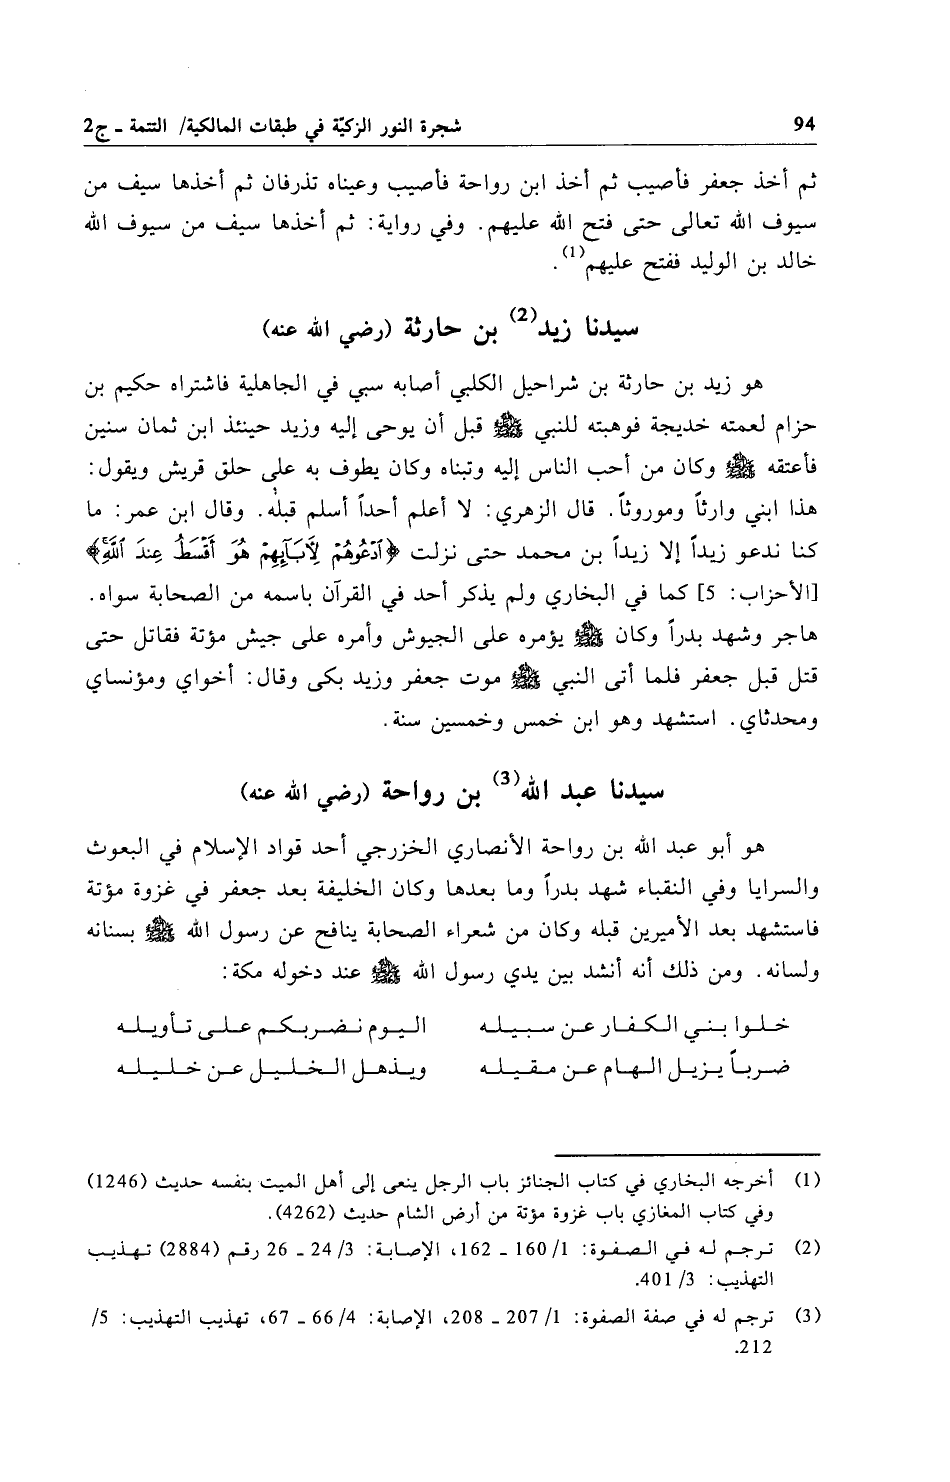 94 شجرة النور الزكيّة في طبقات المالكية/ التتمة ـ ج2
ثم أخذ جعفر فأصيب ثم أخذ ابن رواحة فأصيب وعيناه تذرفان ثم أخذها سيف من
سيوف الله تعالى حتى فتح الله عليهم. وفي رواية: ثم أخذها سيف من سيوف الله
خالد بن الوليد ففتح عليهم(1).
سيدنا زيد(2) بن حارثة (رضي الله عنه)
هو زيد بن حارثة بن شراحيل الكلبي أصابه سبي في الجاهلية فاشتراه حكيم بن
حزام لعمته خديجة فوهبته للنبي ﷺ قبل أن يوحى إليه وزيد حينئذ ابن ثمان سنين
فأعتقه ﷺ وكان من أحب الناس إليه وتبناه وكان يطوف به على حلق قريش ويقول:
هذا ابني وارثاً وموروثاً. قال الزهري: لا أعلم أحداً أسلم قبله. وقال ابن عمر: ما
كنا ندعو زيداً إلا زيداً بن محمد حتى نزلت ﴿ٱدۡعُوهُمۡ لِأٓبَآئِهِمۡ هُوَ أَقۡسَطُ عِندَ ٱللَّهِۚ﴾
[الأحزاب: 5] كما في البخاري ولم يذكر أحد في القرآن باسمه من الصحابة سواه.
هاجر وشهد بدراً وكان ﷺ يؤمره على الجيوش وأمره على جيش مؤتة فقاتل حتى
قتل قبل جعفر فلما أتى النبي ﷺ موت جعفر وزيد بكى وقال: أخواي ومؤنساي
ومحدثاي. استشهد وهو ابن خمس وخمسين سنة.
سيدنا عبد الله(3) بن رواحة (رضي الله عنه)
هو أبو عبد الله بن رواحة الأنصاري الخزرجي أحد قواد الإسلام في البعوث
والسرايا وفي النقباء شهد بدراً وما بعدها وكان الخليفة بعد جعفر في غزوة مؤتة
فاستشهد بعد الأميرين قبله وكان من شعراء الصحابة ينافح عن رسول الله ﷺ بسنانه
ولسانه. ومن ذلك أنه أنشد بين يدي رسول الله ﷺ عند دخوله مكة:
خلوا بني الكفار عن سبيله اليوم نضربكم على تأويله
ضرباً يزيل الهام عن مقيله ويذهل الخليل عن خليله
(1) أخرجه البخاري في كتاب الجنائز باب الرجل ينعى إلى أهل الميت بنفسه حديث (1246)
وفي كتاب المغازي باب غزوة مؤتة من أرض الشام حديث (4262).
(2) ترجم له في الصفوة: 1/ 160 ـ 162، الإصابة: 3/ 24 ـ 26 رقم (2884) تهذيب
التهذيب: 3/ 401.
(3) ترجم له في صفة الصفوة: 1/ 207 ـ 208، الإصابة: 4/ 66 ـ 67، تهذيب التهذيب: 5/
212.